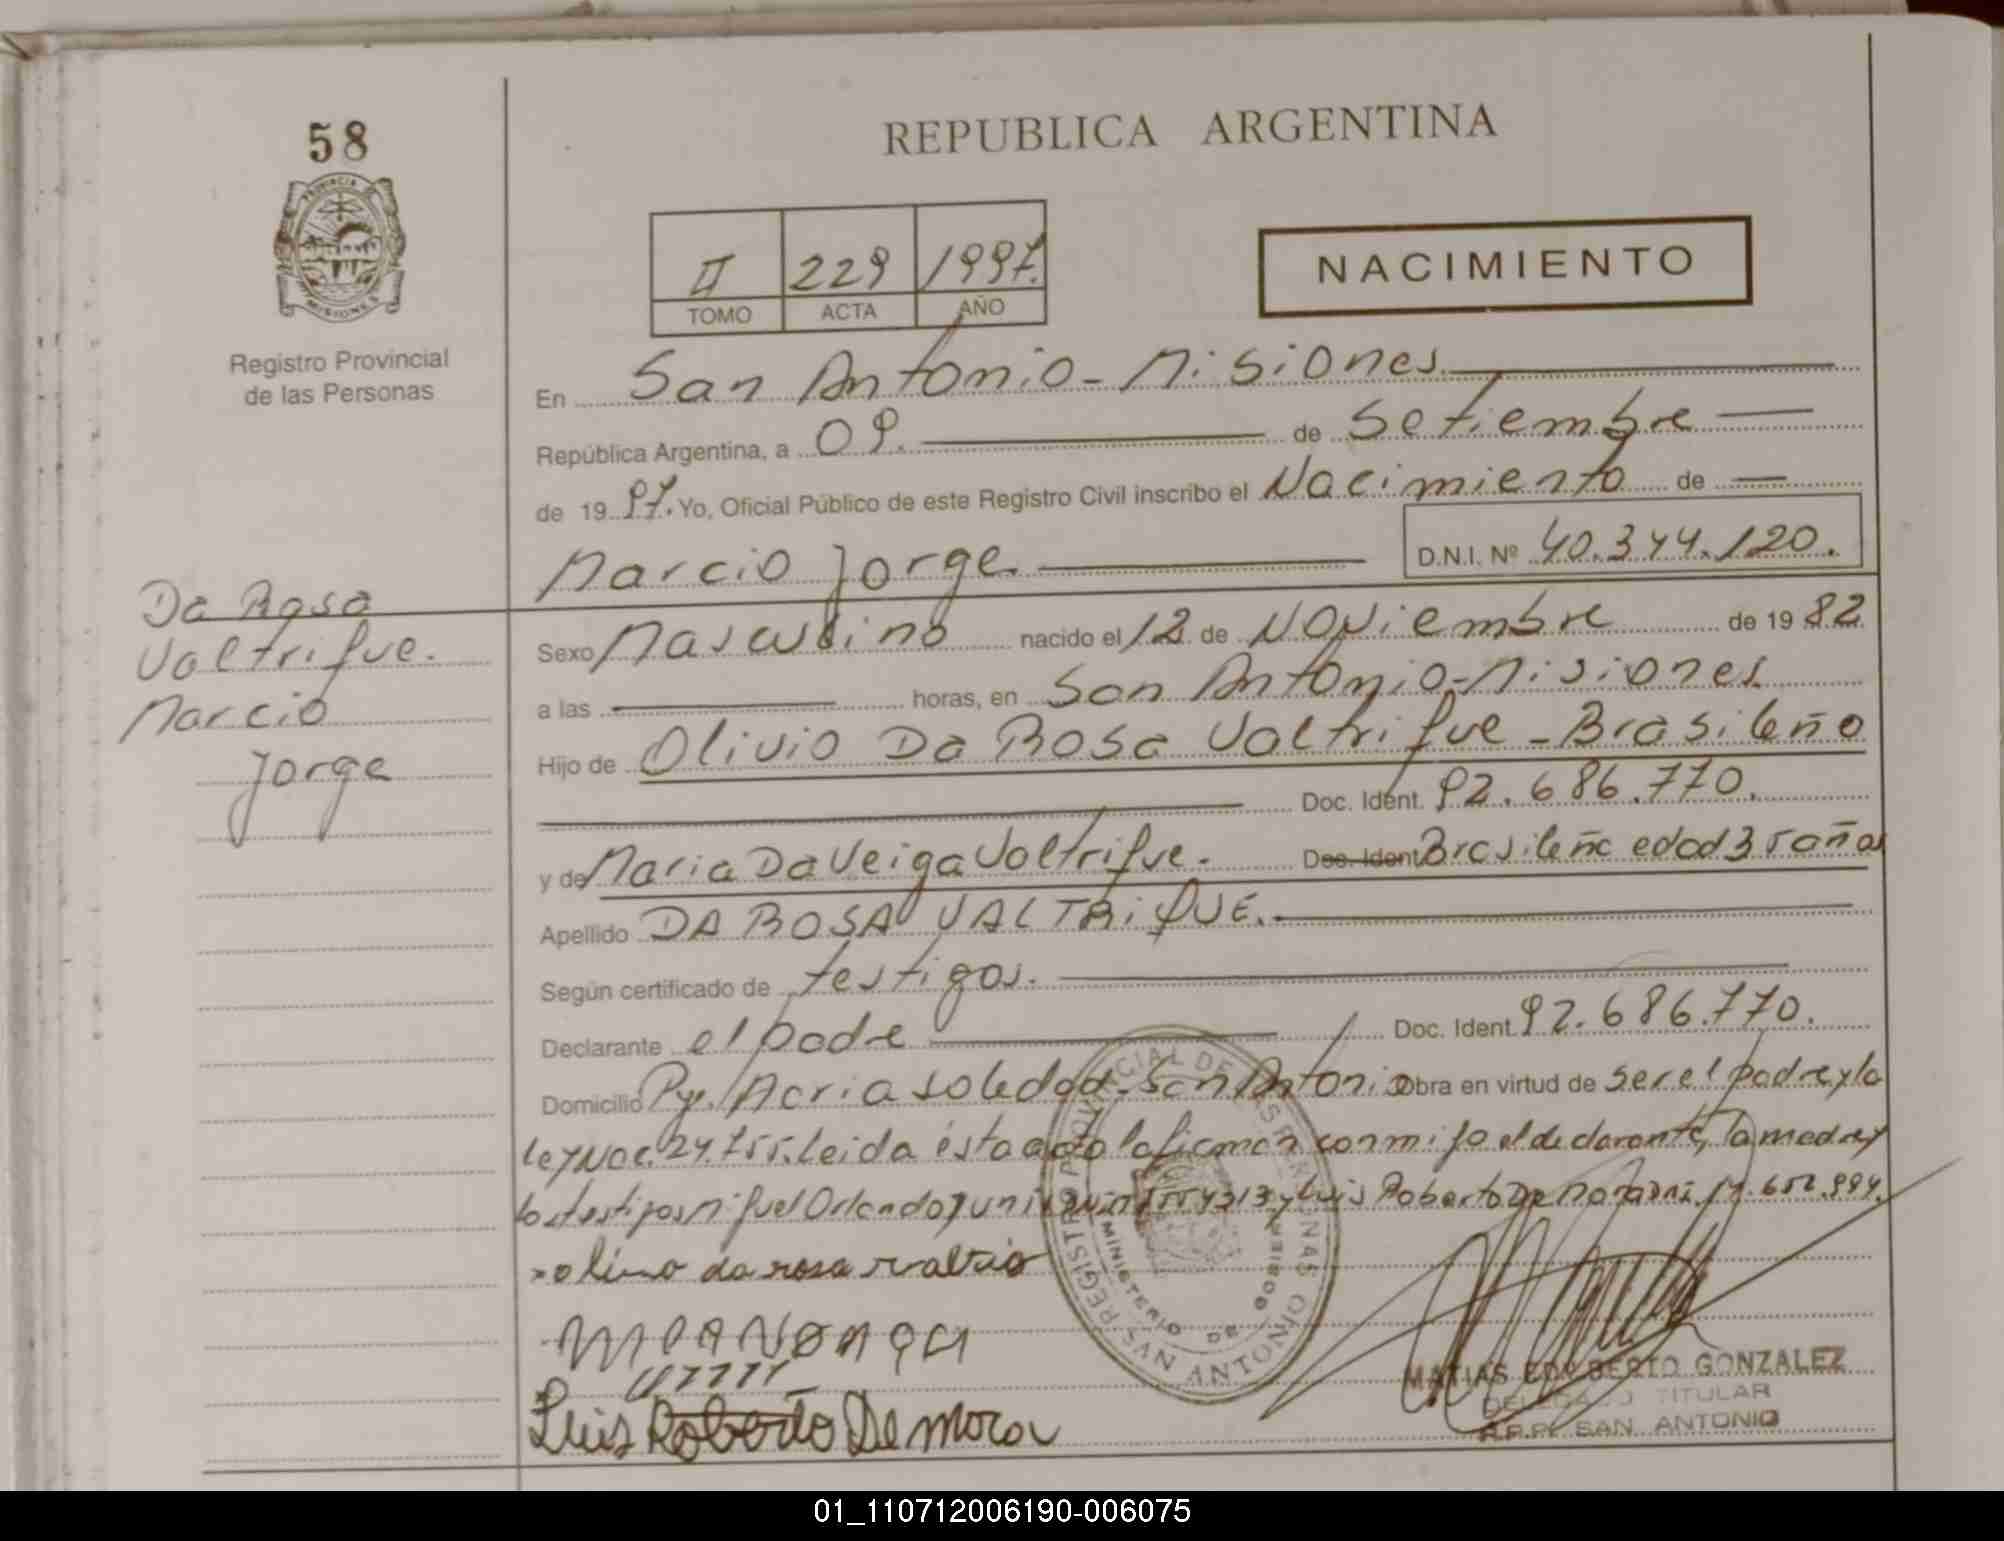 58
PROVINCIA DE
MISIONES
Registro Provincial
de las Personas
REPUBLICA ARGENTINA
II 229 1997.
TOMO ACTA AÑO
NACIMIENTO
En San Antonio - Misiones.
República Argentina, a 09. de Setiembre
de 1997. Yo, Oficial Público de este Registro Civil inscribo el Nacimiento de
Marcio Jorge. D.N.I. Nº 40.344.120.
Da Rosa
Valtrique.
Marcio
Jorge
Sexo Masculino nacido el 12 de Noviembre de 1982
a las horas, en San Antonio - Misiones
Hijo de Olivio Da Rosa Valtrique - Brasileño
Doc. Ident. 92.686.770.
y de Maria Da Veiga Valtrique. Doc. Ident Brasileña edad 35 años
Apellido DA ROSA VALTRiQUE.
Según certificado de testigos.
Declarante el padre Doc. Ident. 92.686.770.
Domicilio Pje. Maria Soledad - San Antonio Obra en virtud de ser el padre y la
ley Nac. 24.755. Leida ésta acta la firman conmigo el declarante, la madre y
los testigos Miguel Orlando y Luis Roberto De Mora
olivio da rosa valtrio
Luis Roberto De Mora
REGISTRO PROVINCIAL DE LAS PERSONAS
MINISTERIO DE GOBIERNO
SAN ANTONIO
MATIAS EDILBERTO GONZALEZ
DELEGADO TITULAR
R.P.P. SAN ANTONIO
01_110712006190-006075